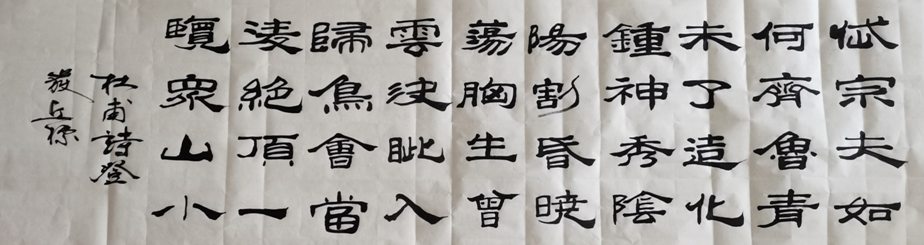 岱宗夫如
何齊魯青
未了造化
鍾神秀陰
陽割昏暁
蕩胸生曾
雲決眦入
歸鳥會當
淩絕頂一
覽眾山小
杜甫詩登